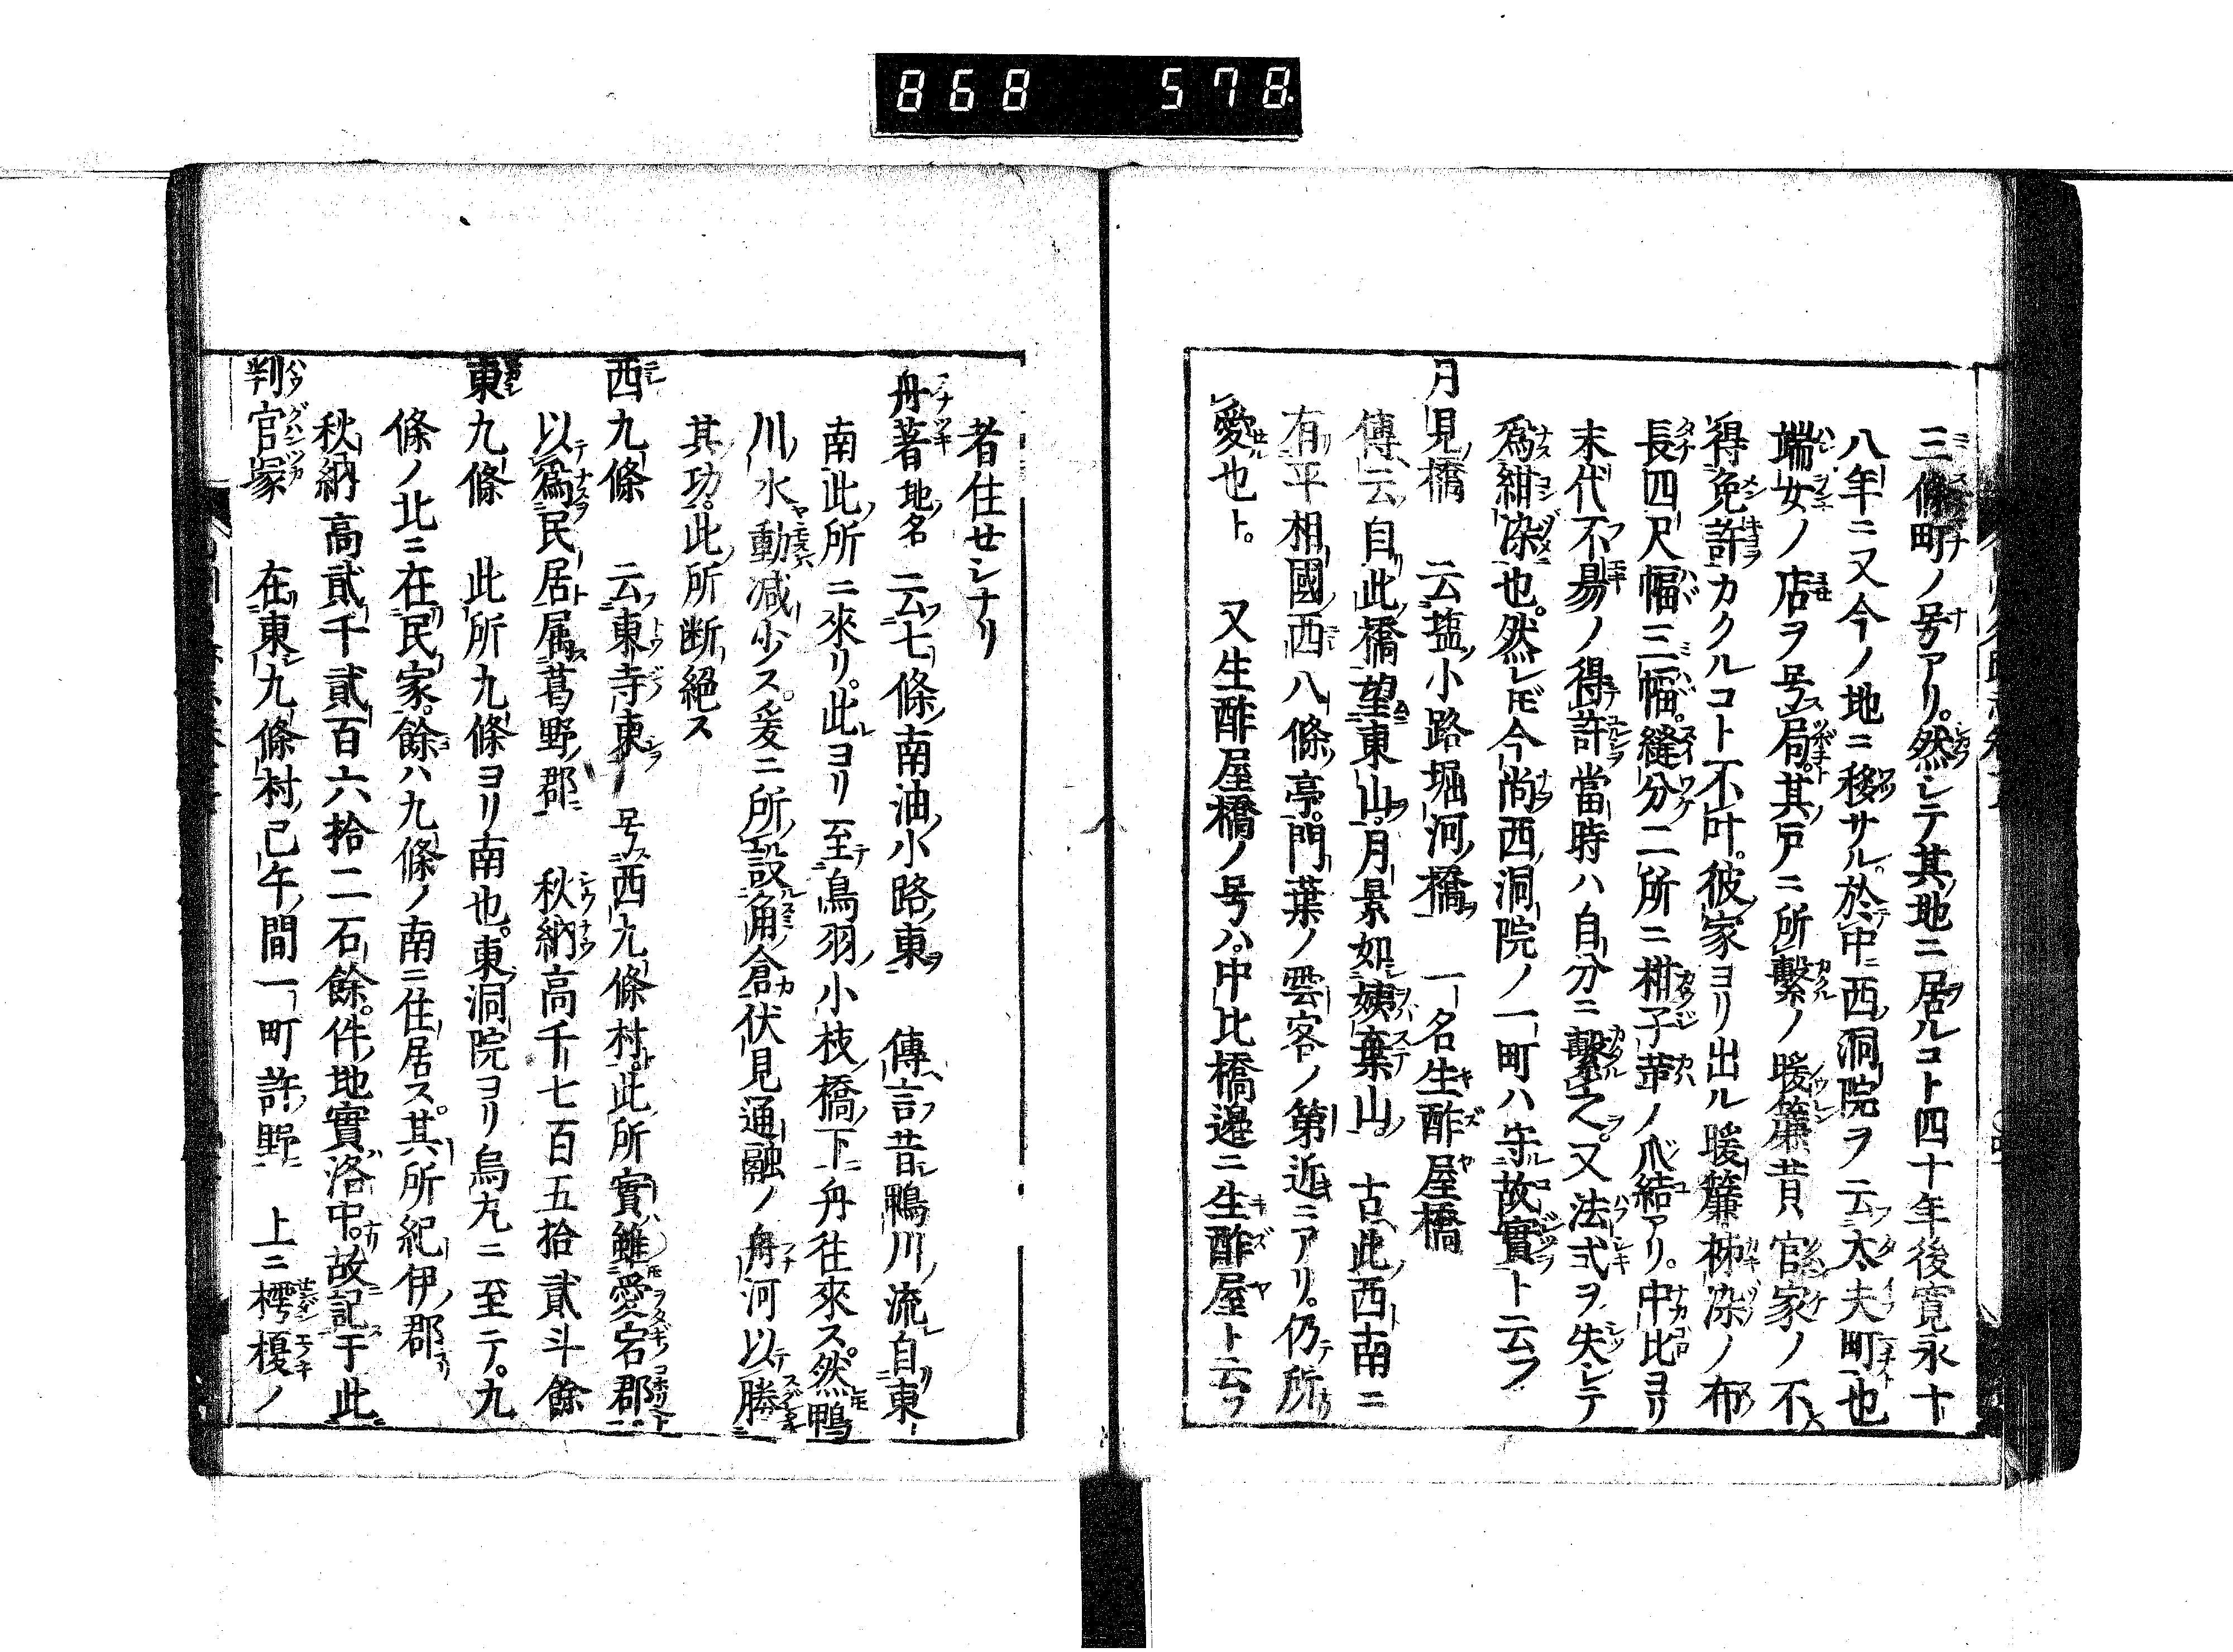 868 578
三條町ノ号アリ。然シテ其地ニ居ルコト四十年後寛永十
八年ニ又今ノ地ニ移サル於中西洞院ヲ云太夫町也
端女ノ店ヲ号局。其戸ニ所繋ノ暖簾昔官家ノ不
得免許カクルコト不叶。彼家ヨリ出ル暖簾柹染ノ布
長四尺幅三幅。縫分二所ニ柑子革ノ爪結アリ。中比ヨリ
末代不易ノ得許當時ハ自分ニ繋之。又法式ヲ失シテ
爲紺染也。然レモ今尚西洞院ノ一町ハ守故實ト云フ
月見橋 云塩小路堀河橋 一名生酢屋橋
傳云自此橋望東山。月景如姨棄山。 古此西南ニ
有平相國西八條亭。門葉ノ雲客ノ第近ニアリ。仍所
愛也ト。 又生酢屋橋ノ号ハ。中比橋邉ニ生酢屋ト云フ
者住セシナリ
舟著地名 云七條南油小路東 傳言昔鴨川流自東
南此所ニ來リ。此ヨリ至鳥羽小枝橋下舟往來ス。然鴨
川水動减少ス。爰ニ所設角倉伏見通融ノ舟河以勝
其功。此所断絕ス
西九條 云東寺東 号西九條村。此所實雖愛宕郡
以爲民居属葛野郡 秋納高千七百五拾貳斗餘
東九條 此所九條ヨリ南也。東洞院ヨリ烏丸ニ至テ。九
條ノ北ニ在民家。餘ハ九條ノ南ニ住居ス。其所紀伊郡
秋納高貳千貳百六拾二石餘。件地實洛中。故記于此
判官塚 在東九條村己午間一町許野 上ニ樗榎ノ